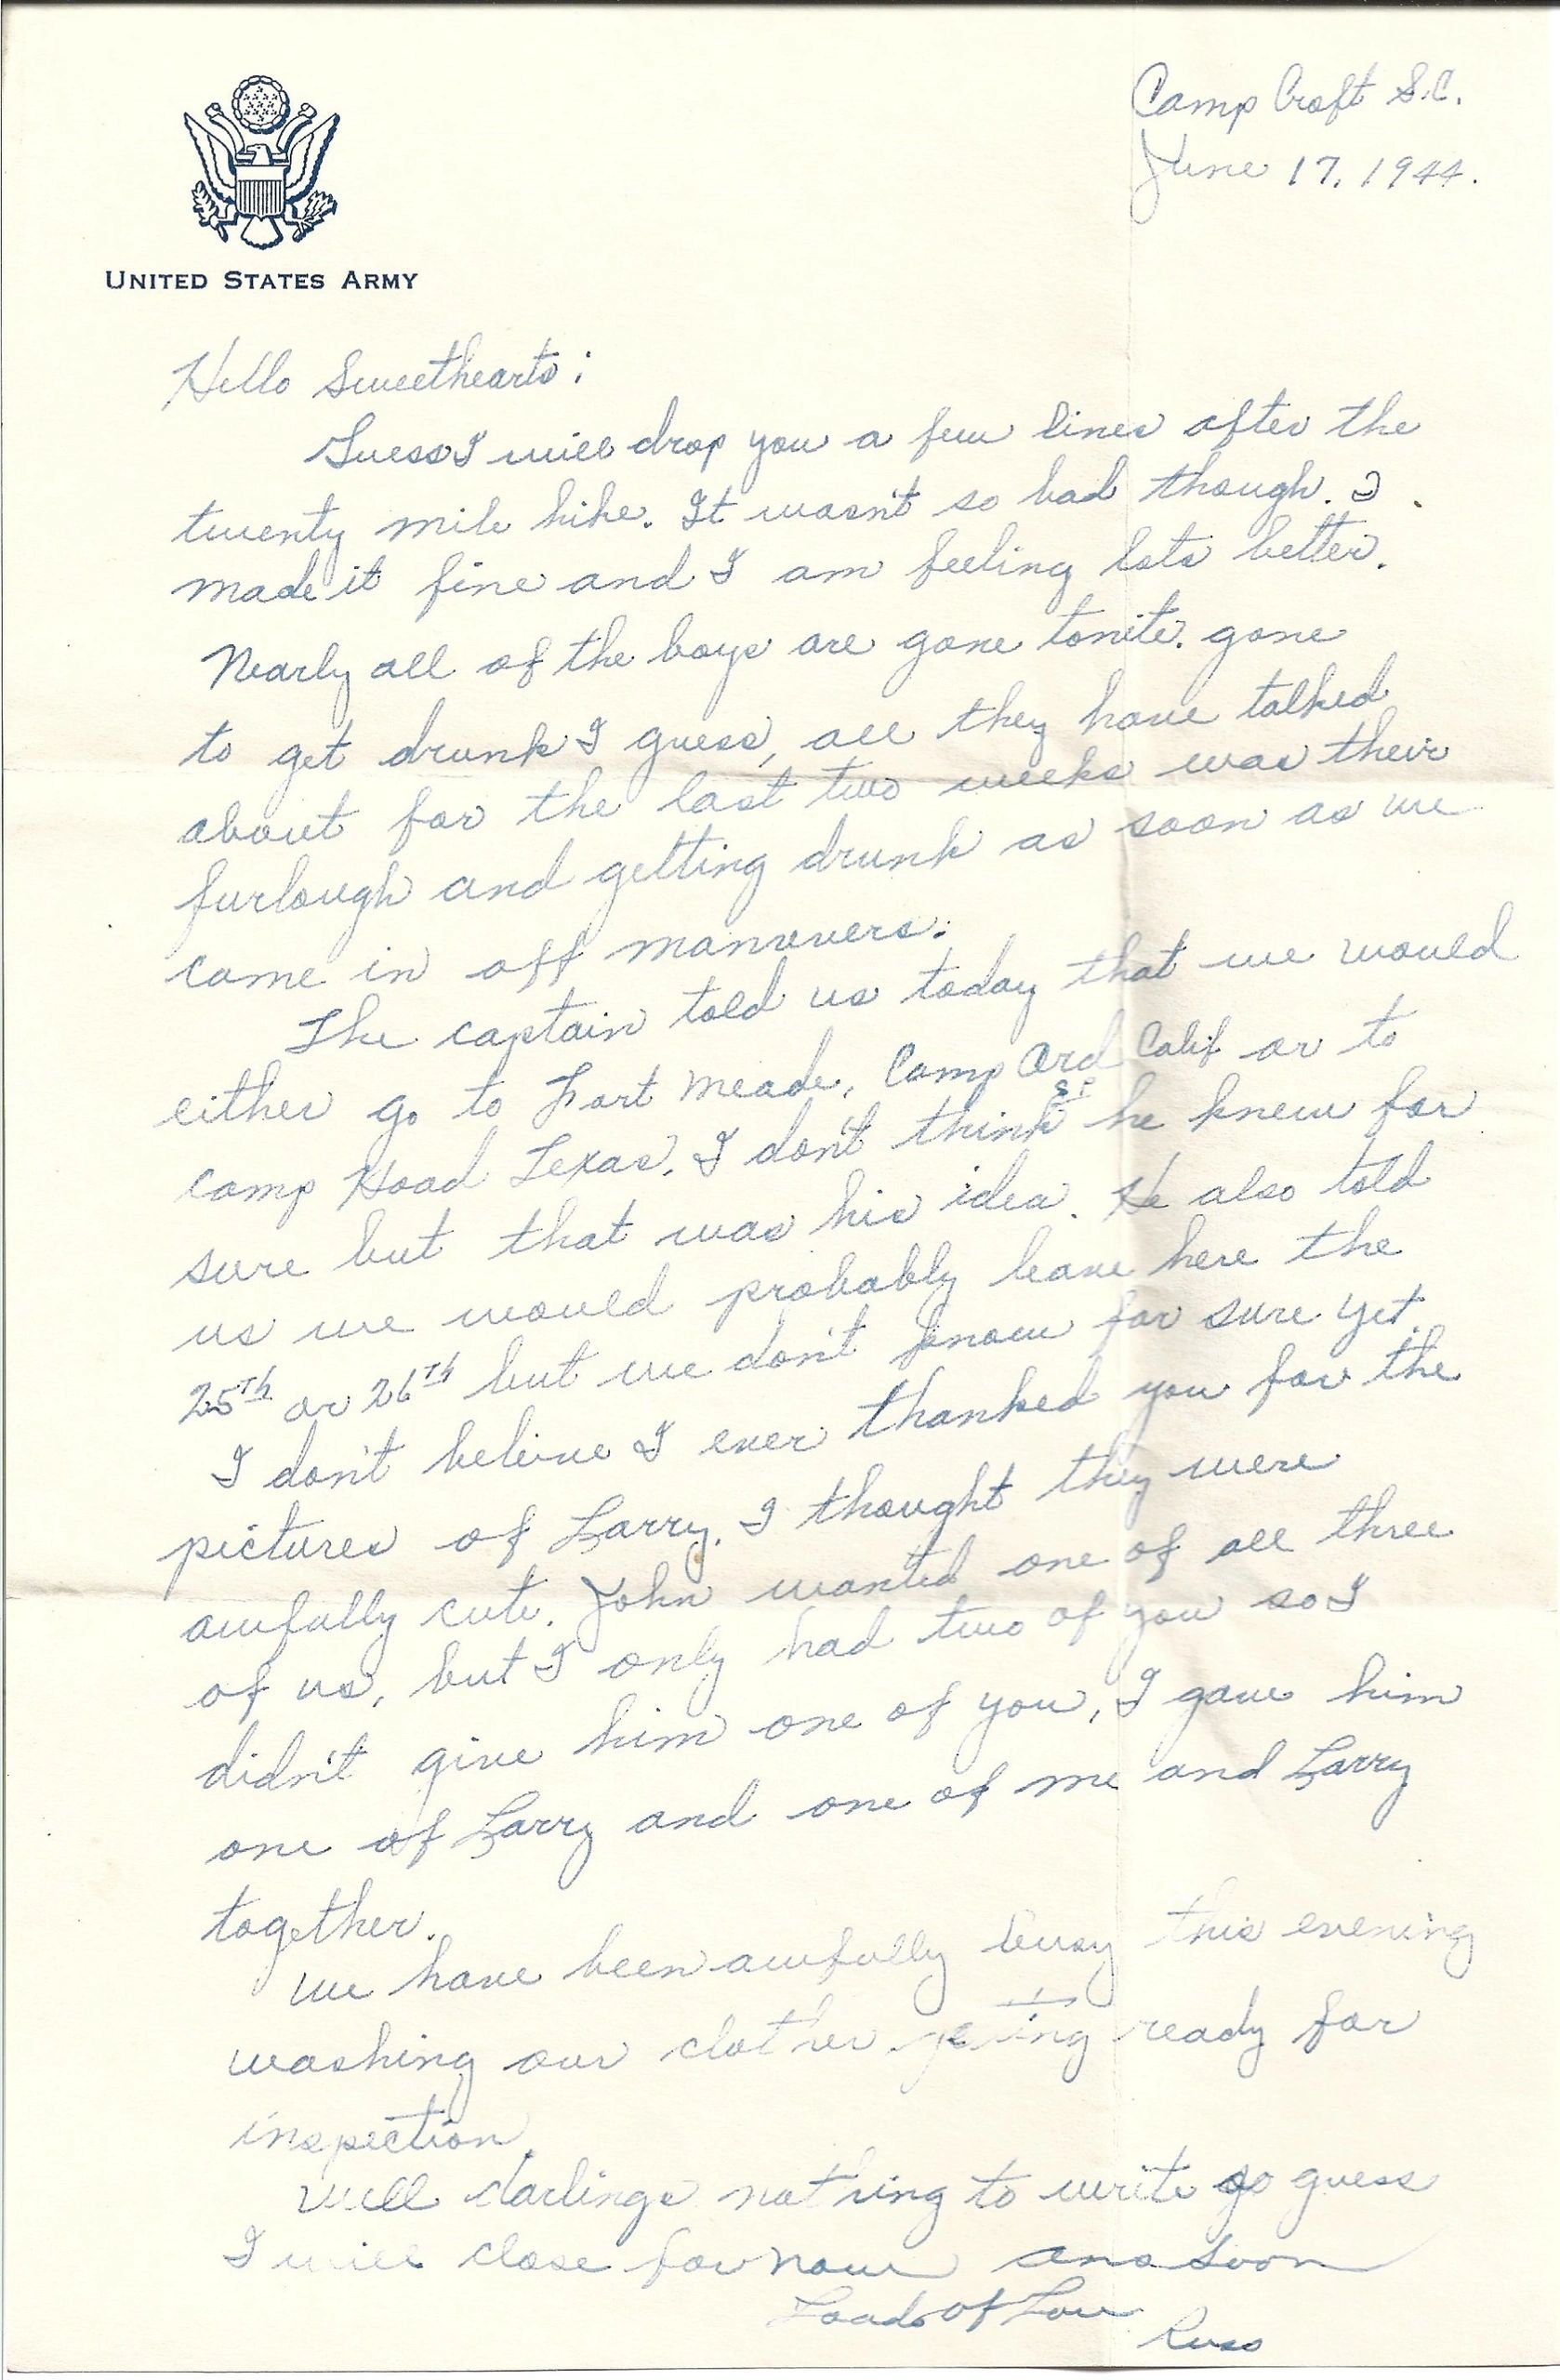 Camp Croft S.C.
June 17, 1944.
UNITED STATES ARMY
Hello Sweethearts;
Guess I will drop you a few lines after the
twenty mile hike. It wasn't so bad though. I
made it fine and I am feeling lots better.
Nearly all of the boys are gone tonite. gone
to get drunk I guess, all they have talked
about for the last two weeks was their
furlough and getting drunk as soon as we
come in off manuvers.
The captain told us today that we would
either go to Fort Meade, Camp Ord Calif or to
camp Hood Texas. I don't think he knew for
sure but that was his idea. He also told
us we would probably leave here the
25th or 26th but we don't know for sure yet.
I don't beleive I ever thanked you for the
pictures of Larry. I thought they were
awfully cute. John wanted one of all three
of us, but I only had two of you so I
didn't give him one of you, I gave him
one of Larry and one of me and Larry
together.
We have been awfully busy this evening
washing our clothes geting ready for
inspection.
Well darlings nothing to write so guess
I will close for now ans soon
Loads of Love
Russ